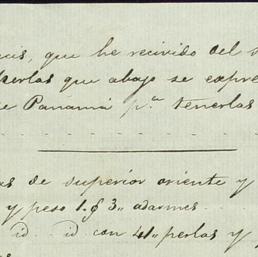 que he recivido del
Perlas que abajo se expre
de Panamá p.ª tenerlas
as de superior oriente y
y peso 1 8 3,, adarmes
id.. id con 41,, perlas y